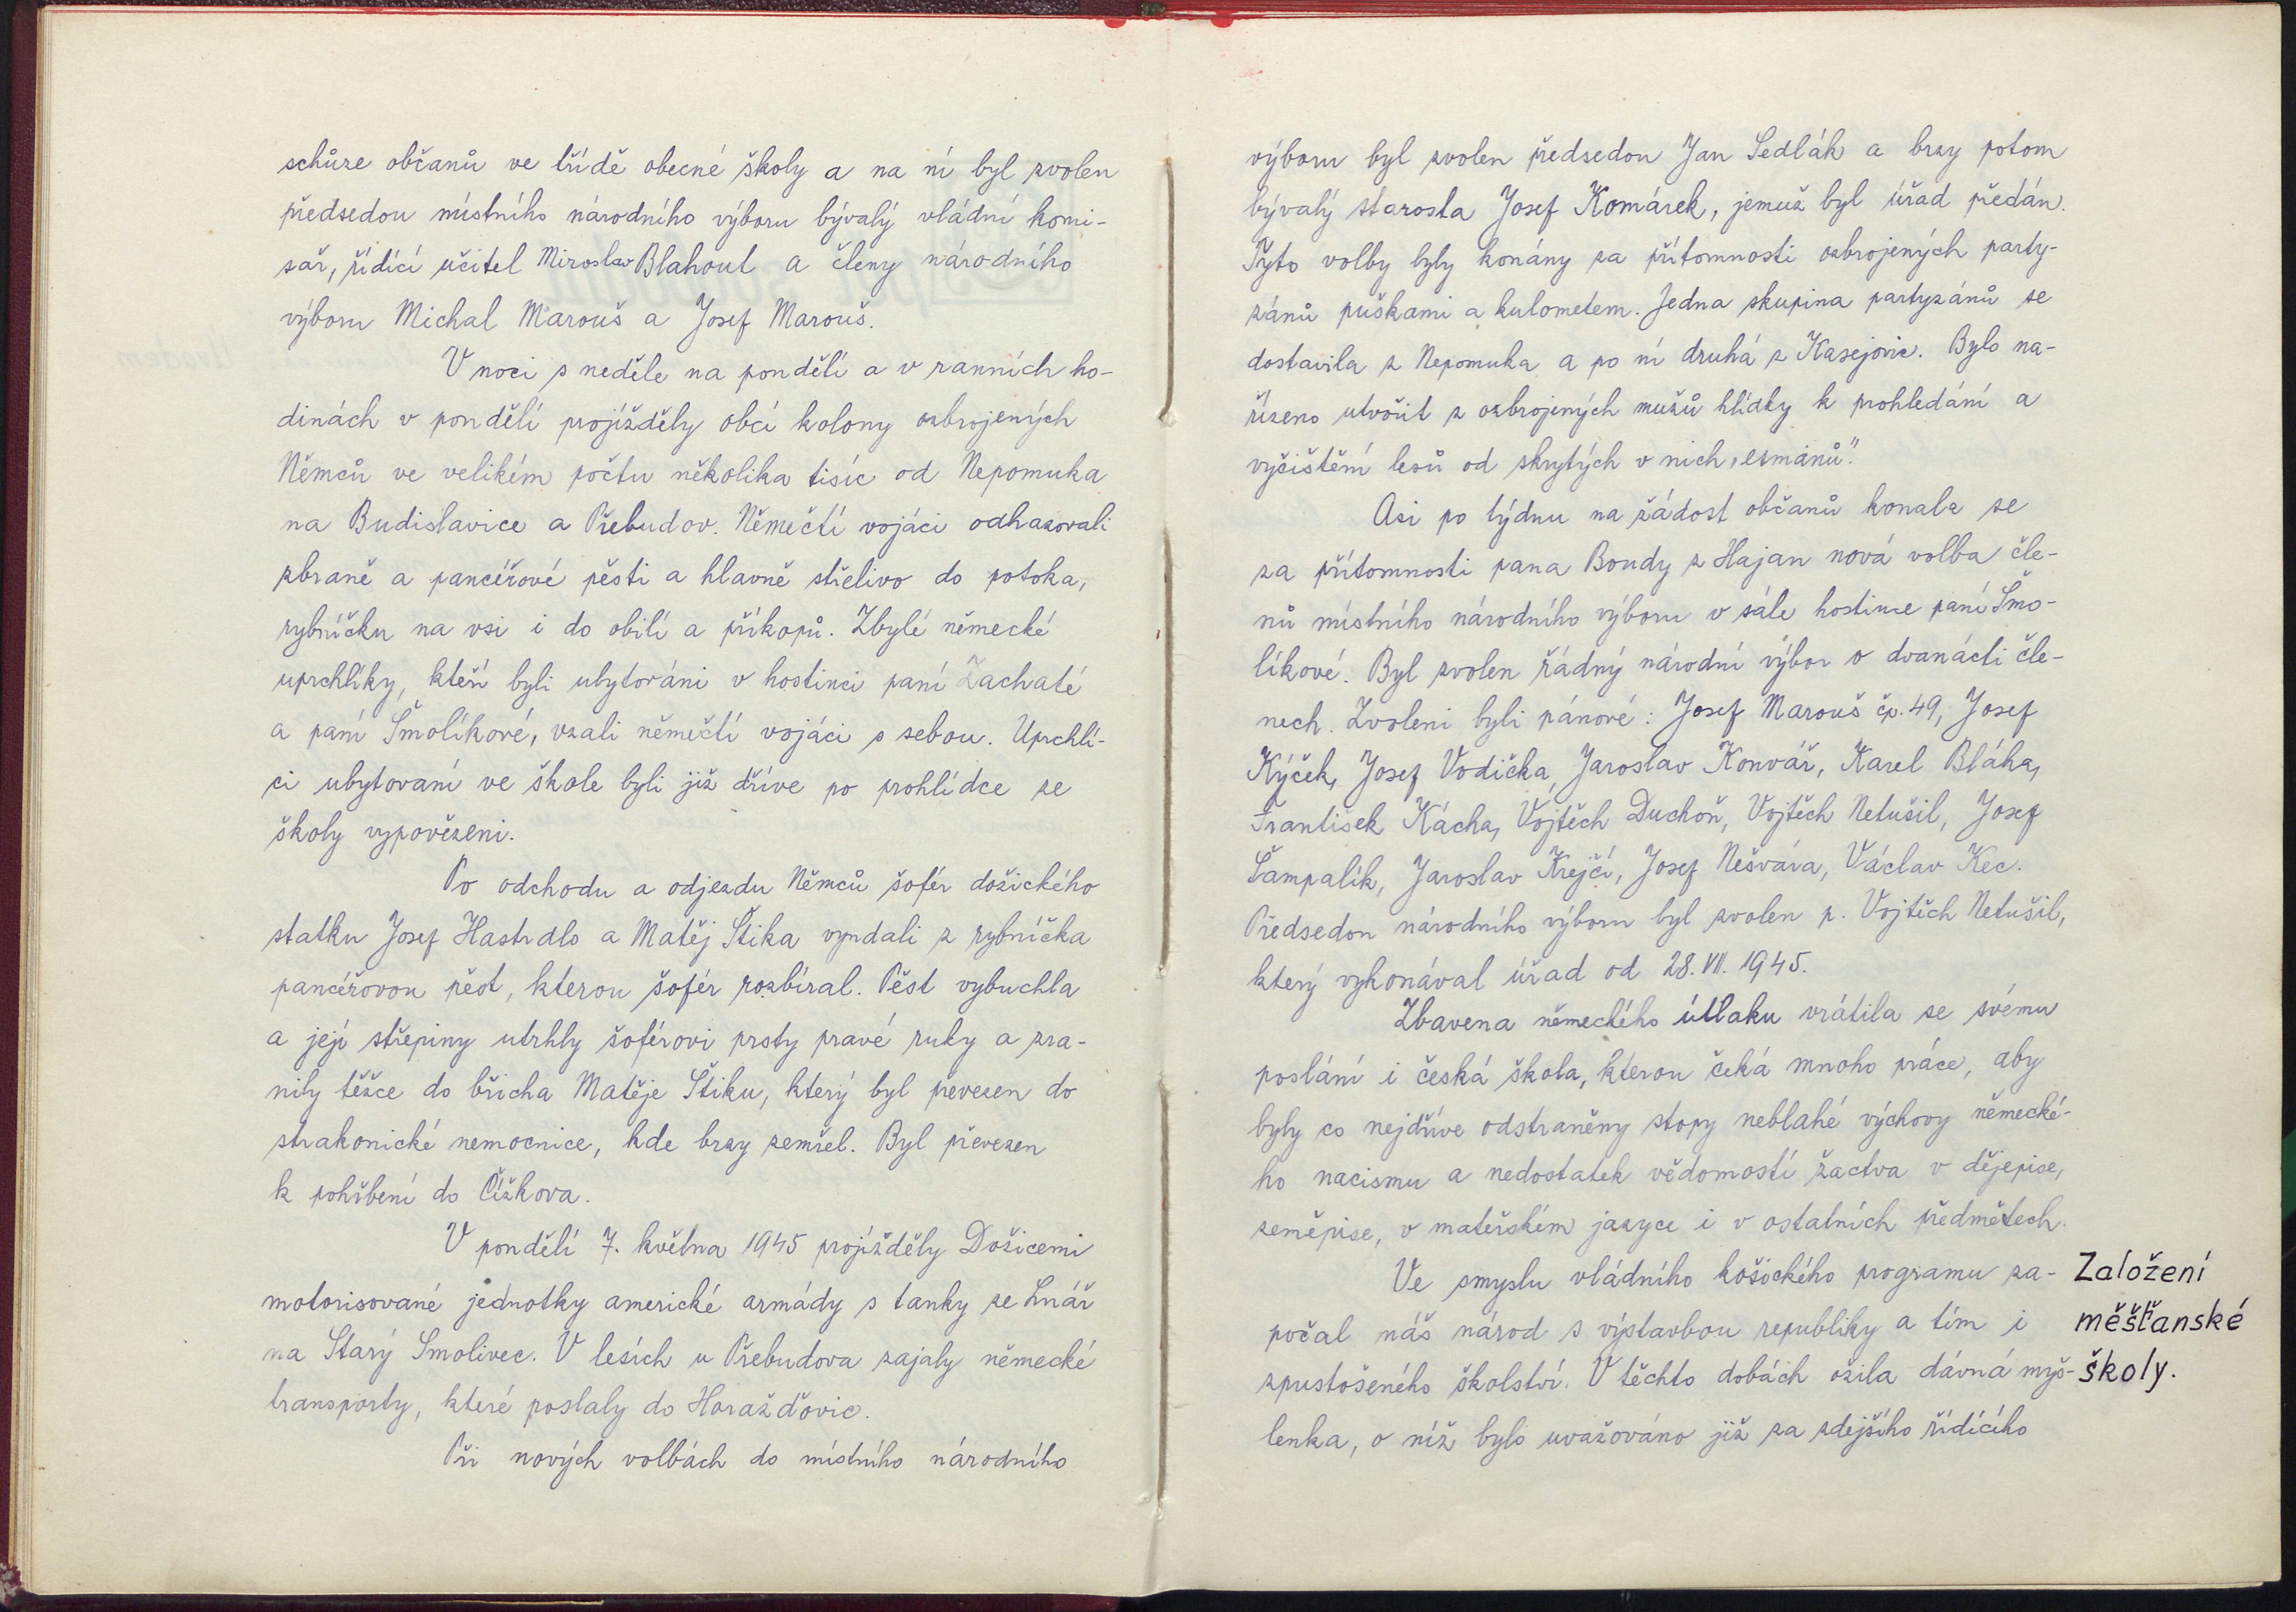 schůze občanů ve třídě obecné školy a na ní byl zvolen
předsedou místního národního výboru bývalý vládní komi-
sař, řídící učitel Miroslav Blahout a členy národního
výboru Michal Marouš a Josef Marouš.
V noci s neděle na pondělí a v ranních ho-
dinách v pondělí projížděly obcí kolony ozbrojených
Němců ve velikém počtu několika tisíc od Nepomuka
na Budislavice a Přebudov. Němečtí vojáci odhazovali
zbraně a pancéřové pěsti a hlavně střelivo do potoka,
rybníčku na vsi i do obilí a příkopů. Zbylé německé
uprchlíky, kteří byli ubytováni v hostinci paní Zachaté
a paní Šmolíkové, vzali němečtí vojáci s sebou. Uprchlí-
ci ubytovaní ve škole byli již dříve po prohlídce ze
školy vypovězeni.
Po odchodu a odjezdu Němců šofér dožického
statku Josef Hastrdlo a Matěj Štika vyndali z rybníčka
pancéřovou pěst, kterou šofér rozbíral. Pěst vybuchla
a její střepiny utrhly šoférovi prsty pravé ruky a zra-
nily těžce do břicha Matěje Štiku, který byl převezen do
strakonické nemocnice, kde brzy zemřel. Byl převezen
k pohřbení do Čížkova.
V pondělí 7. května 1945 projížděly Dožicemi
motorisované jednotky americké armády s tanky ze Lnář
na Starý Smolivec. V lesích u Přebudova zajaly německé
transporty, které poslaly do Horažďovic.
Při nových volbách do místního národního
výboru byl zvolen předsedou Jan Sedlák a brzy potom
bývalý starosta Josef Komárek, jemuž byl úřad předán.
Tyto volby byly konány za přítomnosti ozbrojených party-
zánů puškami a kulometem. Jedna skupina partyzánů se
dostavila z Nepomuka a po ní druhá z Kasejovic. Bylo na-
řízeno utvořit z ozbrojených mužů hlídky k prohledání a
vyčištění lesů od skrytých v nich „esmánů".
Asi po týdnu na žádost občanů konala se
za přítomnosti pana Boudy z Hajan nová volba čle-
nů místního národního výboru v sále hostince paní Šmo-
líkové. Byl zvolen řádný národní výbor o dvanácti čle-
nech. Zvoleni byli pánové: Josef Marouš čp. 49, Josef
Kýček, Josef Vodička, Jaroslav Konvář, Karel Bláha,
František Kácha, Vojtěch Duchoň, Vojtěch Netušil, Josef
Šampalík, Jaroslav Krejčí, Josef Nešvára, Václav Kec.
Předsedou národního výboru byl zvolen p. Vojtěch Netušil,
který vykonával úřad od 28. VII. 1945.
Zbavena německého útlaku vrátila se svému
poslání i česká škola, kterou čeká mnoho práce, aby
byly co nejdříve odstraněny stopy neblahé výchovy německé-
ho nacismu a nedostatek vědomostí žactva v dějepise,
zeměpise, v mateřském jazyce i v ostatních předmětech.
Ve smyslu vládního košického programu za-
počal náš národ s výstavbou republiky a tím i
zpustošeného školství. V těchto dobách ožila dávná myš-
lenka, o níž bylo uvažováno již za zdejšího řídícího
Založení
měšťanské
školy.